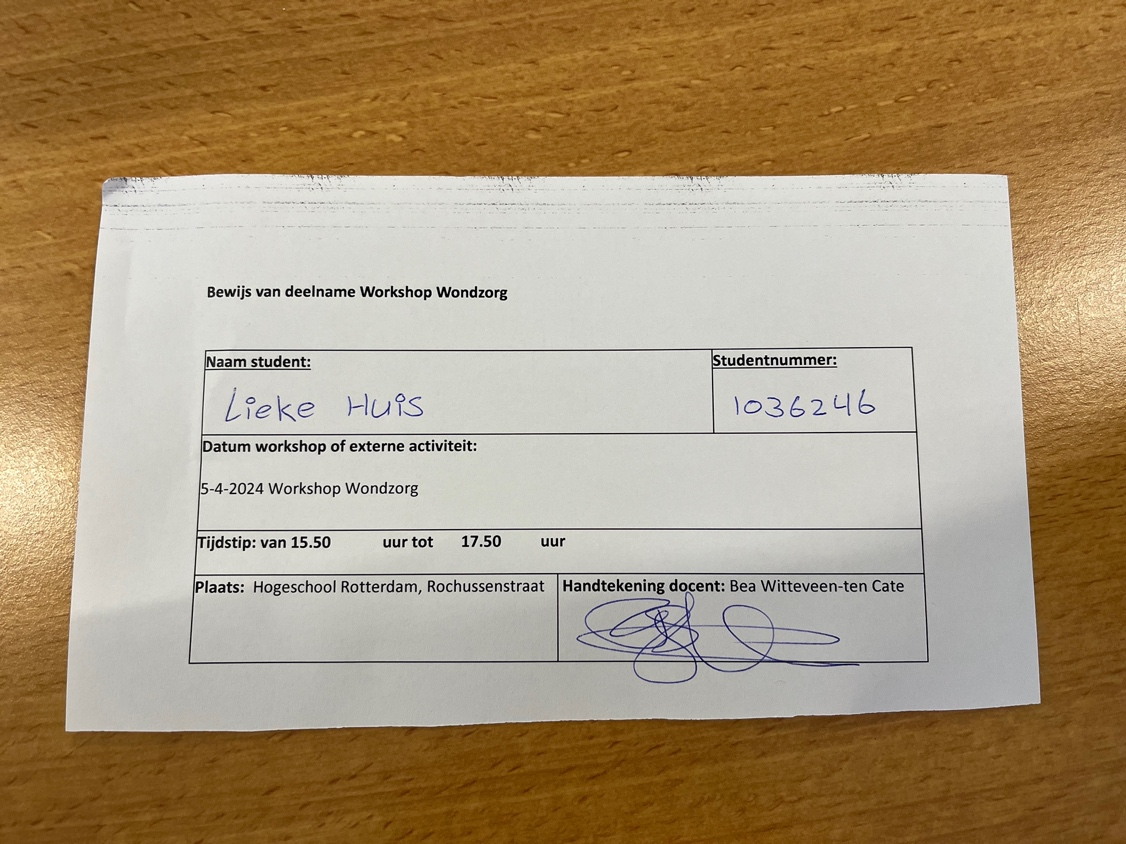 Bewijs van deelname Workshop Wondzorg
Naam student:
Studentnummer:
Lieke Huis
1036246
Datum workshop of externe activiteit:
5-4-2024 Workshop Wondzorg
Tijdstip: van 15.50 uur tot 17.50 uur
Plaats: Hogeschool Rotterdam, Rochussenstraat
Handtekening docent: Bea Witteveen-ten Cate